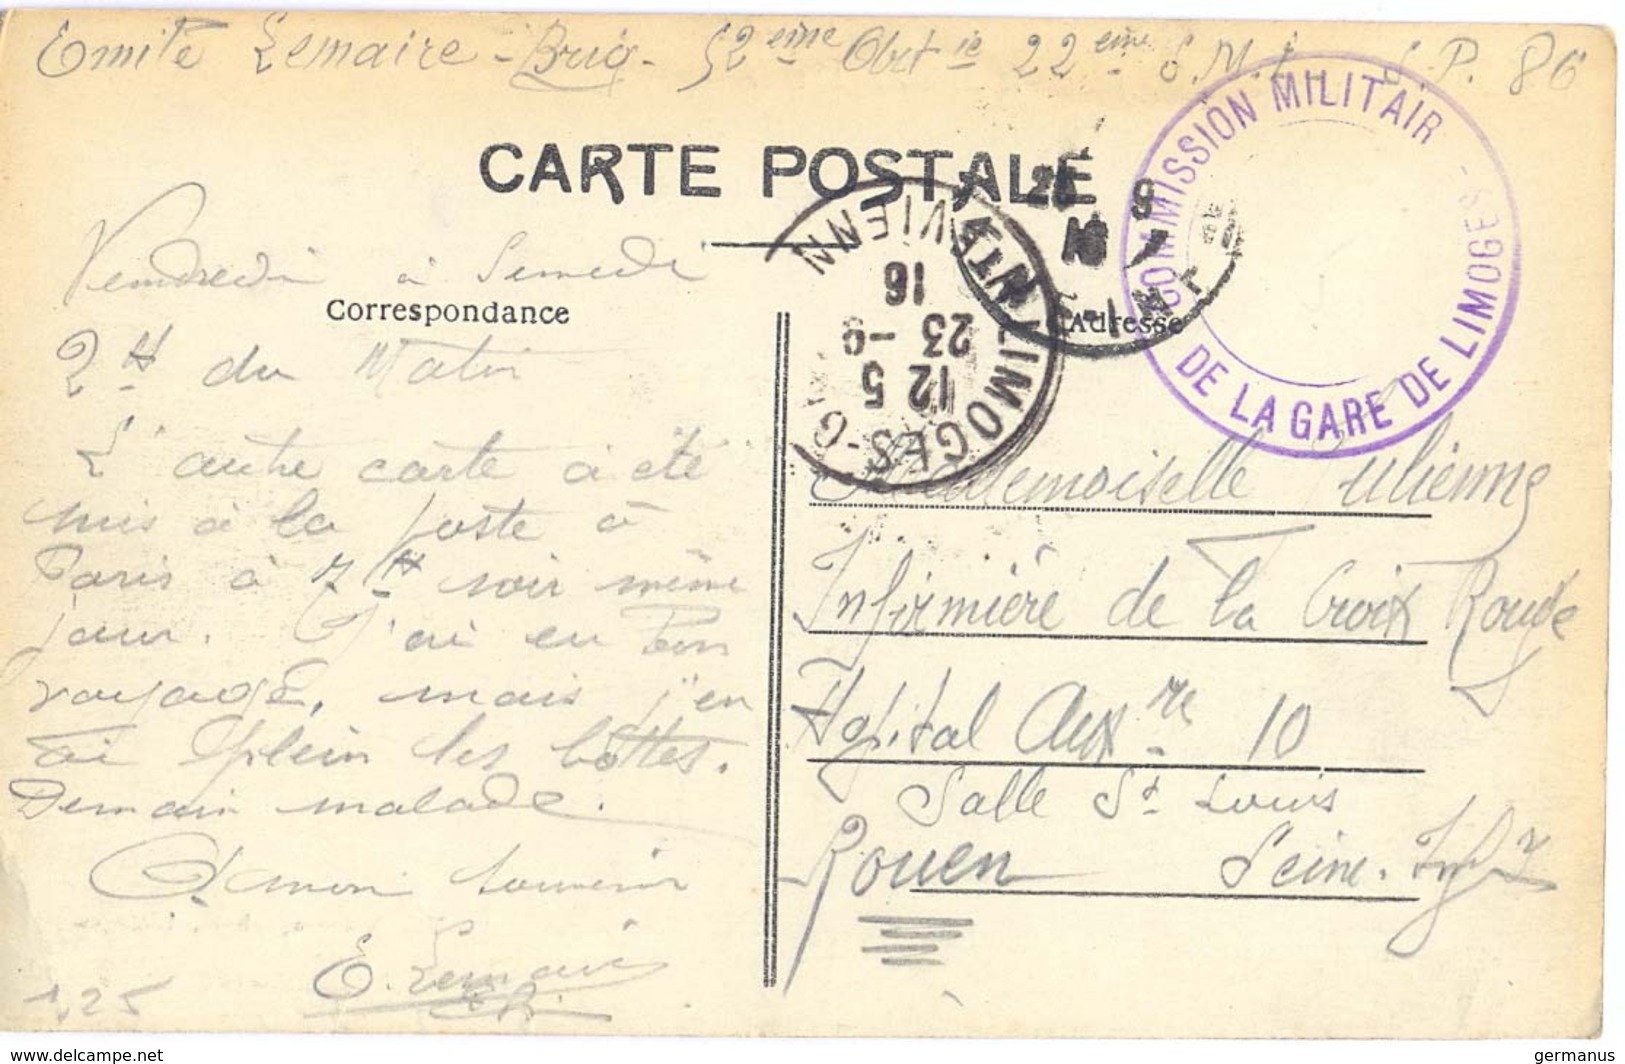 Emile Lemaire - Brig - 52eme Obst ie 22eme S.M.I. S.P. 86
CARTE POSTALE
COMMISSION MILITAIR
DE LA GARE DE LIMOGES
LIMOGES-G
VIENN
12 5
23 -9
16
Correspondance
Adresse
Vendredi à Samedi
2 H du Matin
L'autre carte a été
mis à la poste à
Paris à 7 H soir même
jour. J'ai eu bon
voyage, mais j'en
ai plein les bottes.
Demain malade.
Amoni souvenir
E. Lemaire
1,25
Mademoiselle Julienne
Infirmière de la Croix Rouge
Hopital Auxre 10
Salle St Louis
Rouen Seine. Infre
germanus
www.delcampe.net